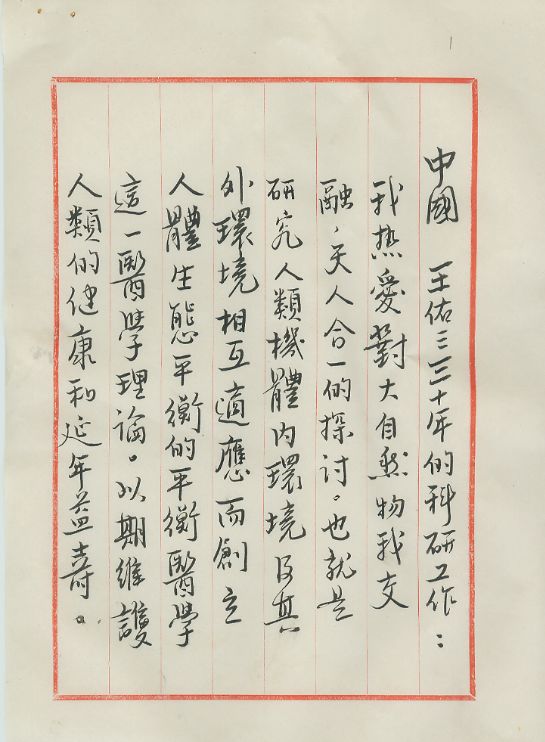 中國 王佑三三十年的科研工作：
我热愛對大自然物我交
融，天人合一的探討。也就是
研究人類機體內環境及其
外環境相互適應而創立
人體生態平衡的平衡醫學
這一醫學理論。以期維護
人類的健康和延年益壽。